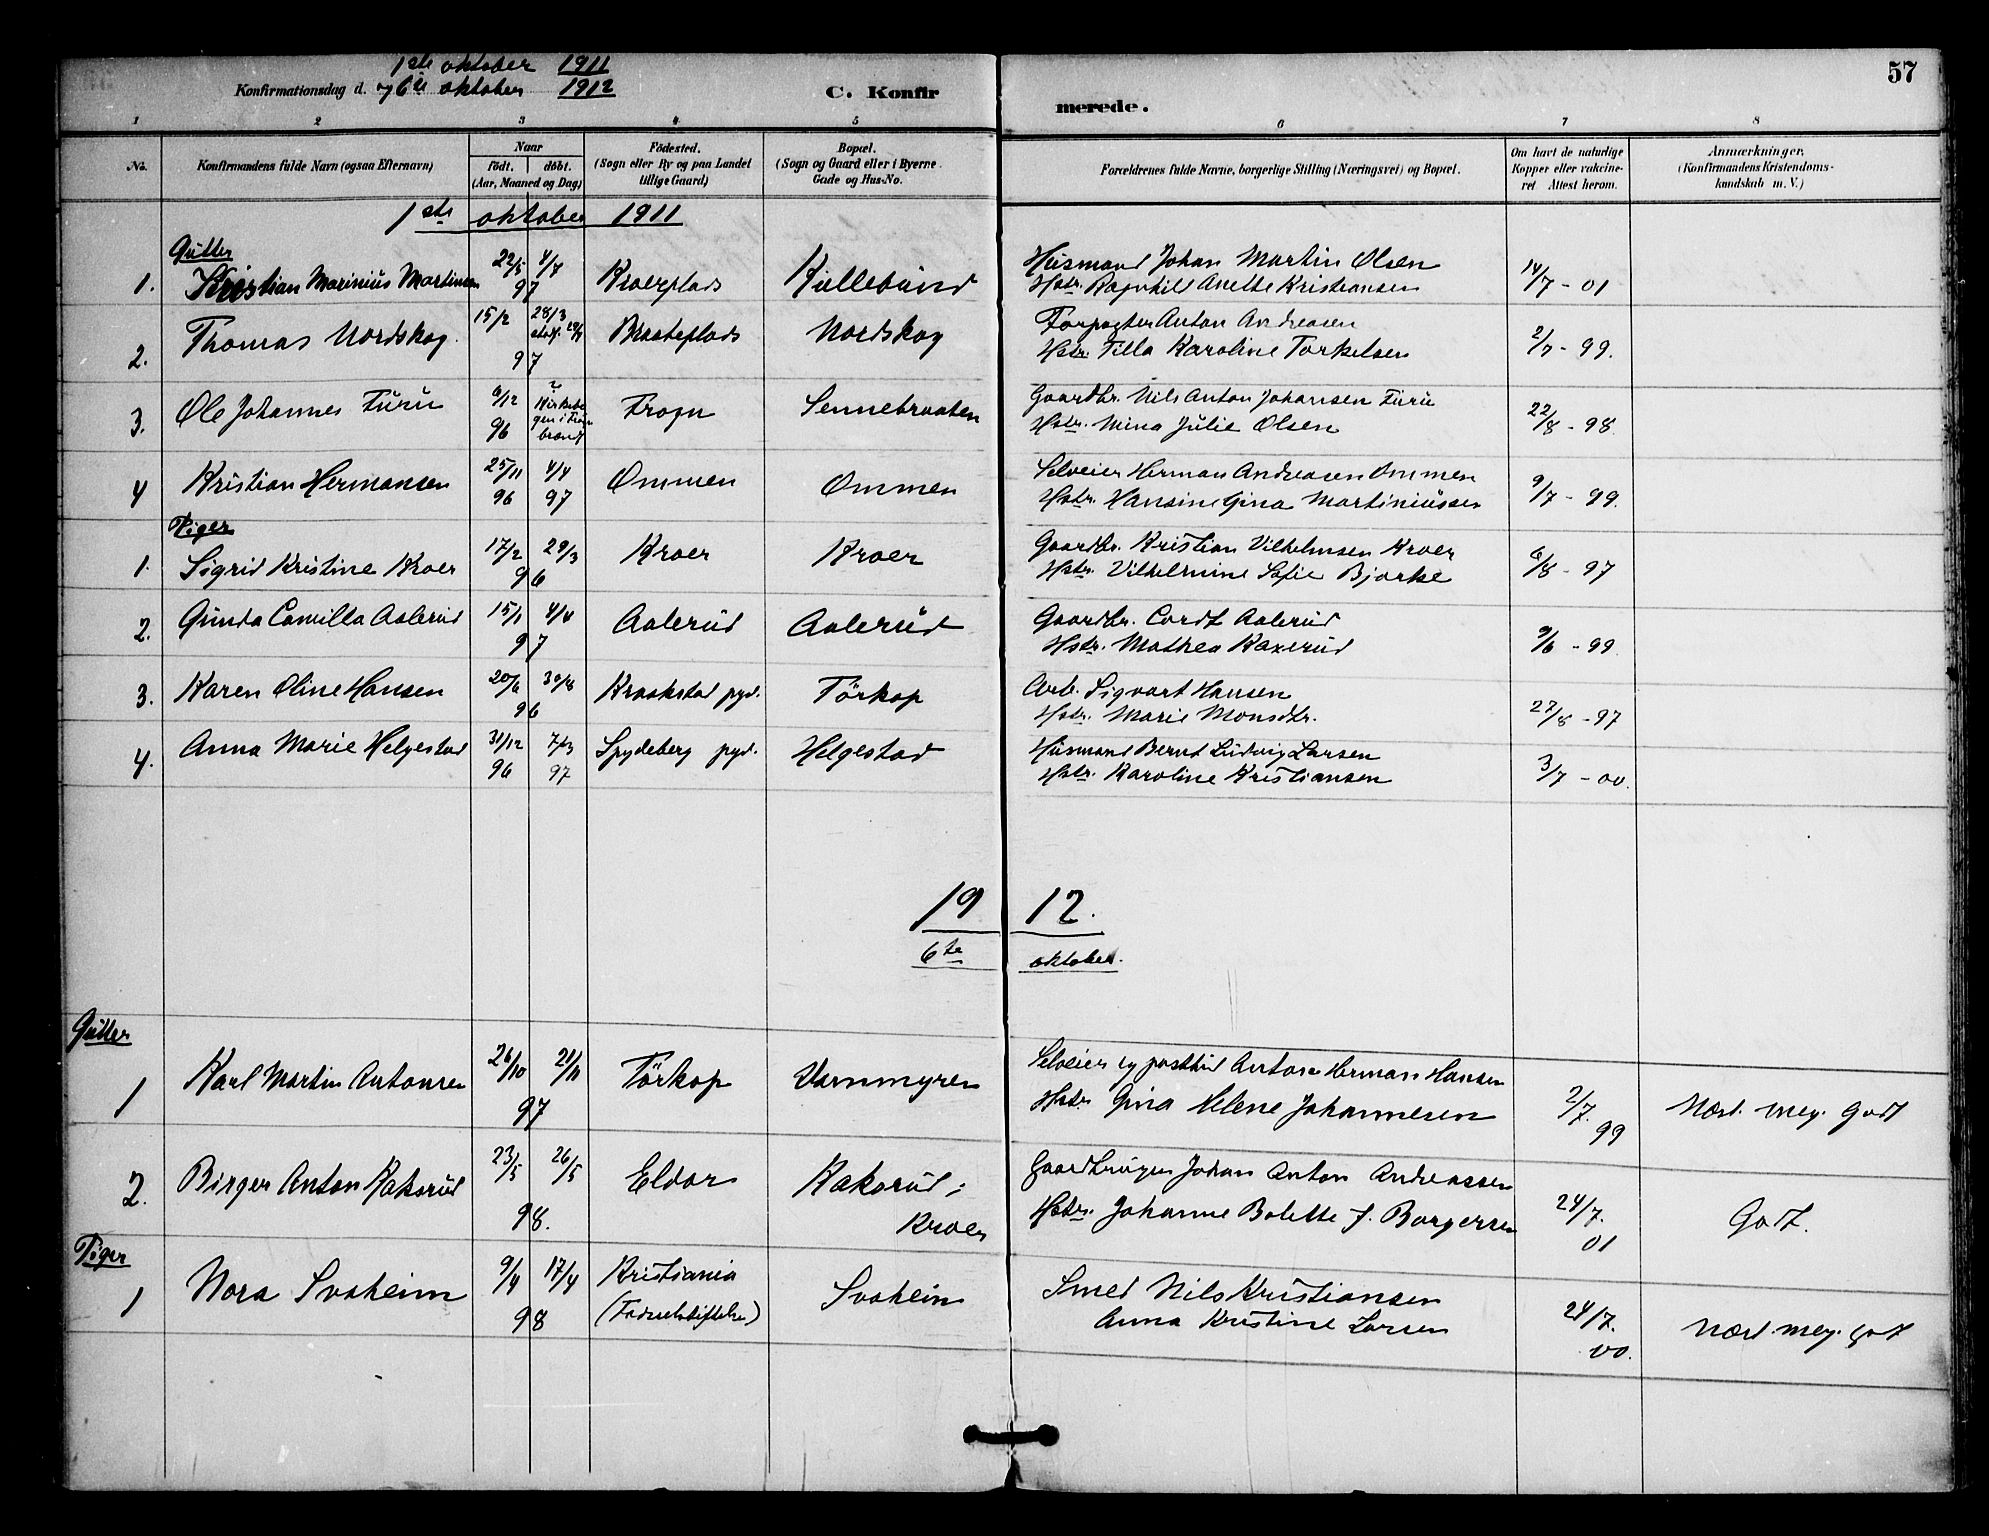 57
1ste oktober 1911
Konfirmationsdag d. og 6te oktober 1912
C. Konfirmerede.
1 2 3 4 5 6 7 8
No.
Konfirmandens fulde Navn (ogsaa Efternavn)
Naar
födt. döbt.
(Aar, Maaned og Dag)
Födested.
(Sogn eller By og paa Landet
tillige Gaard)
Bopæl.
(Sogn og Gaard eller i Byerne
Gade og Hus-No.
Forældrenes fulde Navne, borgerlige Stilling (Næringsvei) og Bopæl.
Om havt de naturlige
Kopper eller vakcine-
ret Attest herom.
Anmærkninger.
(Konfirmandens Kristendoms-
kundskab m. V.)
1ste oktober 1911
Gutter
1. Kristian Marinius Martinsen 22/5 4/7 97 Kroerplads Kullebund Husmand Johan Martin Olsen
Hstr. Ragnhild Anette Kristiansen 14/7 - 01
2. Thomas Nordskog 15/2 28/3 97 Braateplads Nordskog Forpagter Anton Andreasen
Hstr. Tilla Karoline Torkelsen 2/7 - 99.
3. Ole Johannes Furu 6/12 96 ? Kirkebogen i brand Frogn Sennebraaten Gaardbr. Nils Anton Johansen Furu
Hstr. Mina Julie Olsen 22/8 - 98
4 Kristian Hermansen 25/11 96 4/4 97 Ommen Ommen Selveier Herman Andreasen Ommen
Hstr. Hansine Gina Martiniussen 9/7 - 99.
Piger
1. Sigrid Kristine Kroer 17/2 29/3 96 Kroer Kroer Gaardbr. Kristian Vilhelmsen Kroer
Hstr. Vilhelmine Sofie Bjerke 6/8 - 97
2. Gunda Camilla Aalerud 15/1 4/4 97 Aalerud Aalerud Gaardbr. Cordt Aalerud
Hstr. Mathea Kaxerud 9/6 - 99
3. Karen Oline Hansen 20/6 30/8 96 Kraakstad pgd. Törkop Arb. Sigvart Hansen
Hstr. Marie Monsdtr. 27/8 - 97
4. Anna Marie Helgestad 31/12 96 7/3 97 Spydeberg pgd. Helgestad Husmand Bernt Ludvig Larsen
Hstr. Karoline Kristiansen 3/7 - 00.
1912.
6te oktober.
Gutter
1 Karl Martin Antonsen 26/10 21/11 97 Törkop Vammyren Selveier og Anton Herman Hansen
Hstr. Gina Helene Johannesen 2/7. 99 Næst. meg. Godt
2. Birger Anton Kaksrud 23/5 26/5 98. Eldor Kaksrud i
Kroer Gaardbruger Johan Anton Andreassen
Hstr. Johanne Bolette J. Borgersen 24/7. 01 Godt.
Piger
1 Nora Svaheim 9/4 17/4 98 Kristiania
(Födselsstiftelsen) Svaheim Smed Nils Kristiansen
Anna Kristine Larsen 24/7. 00. Næst. meg. godt